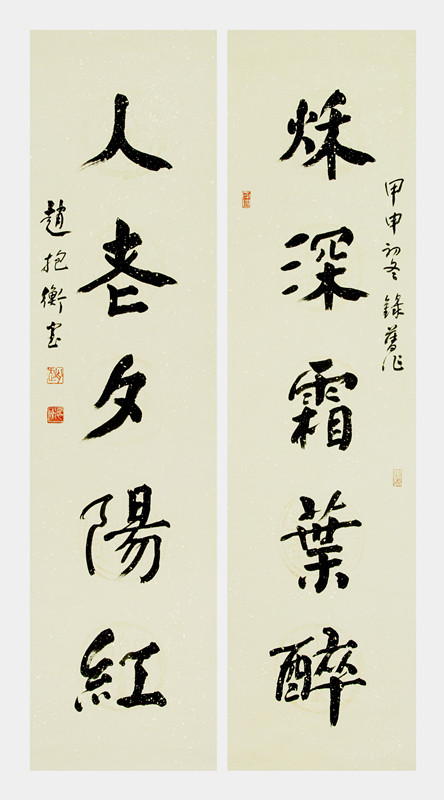 甲申初冬錄舊作
秌深霜葉醉
人老夕陽紅
趙抱衡書